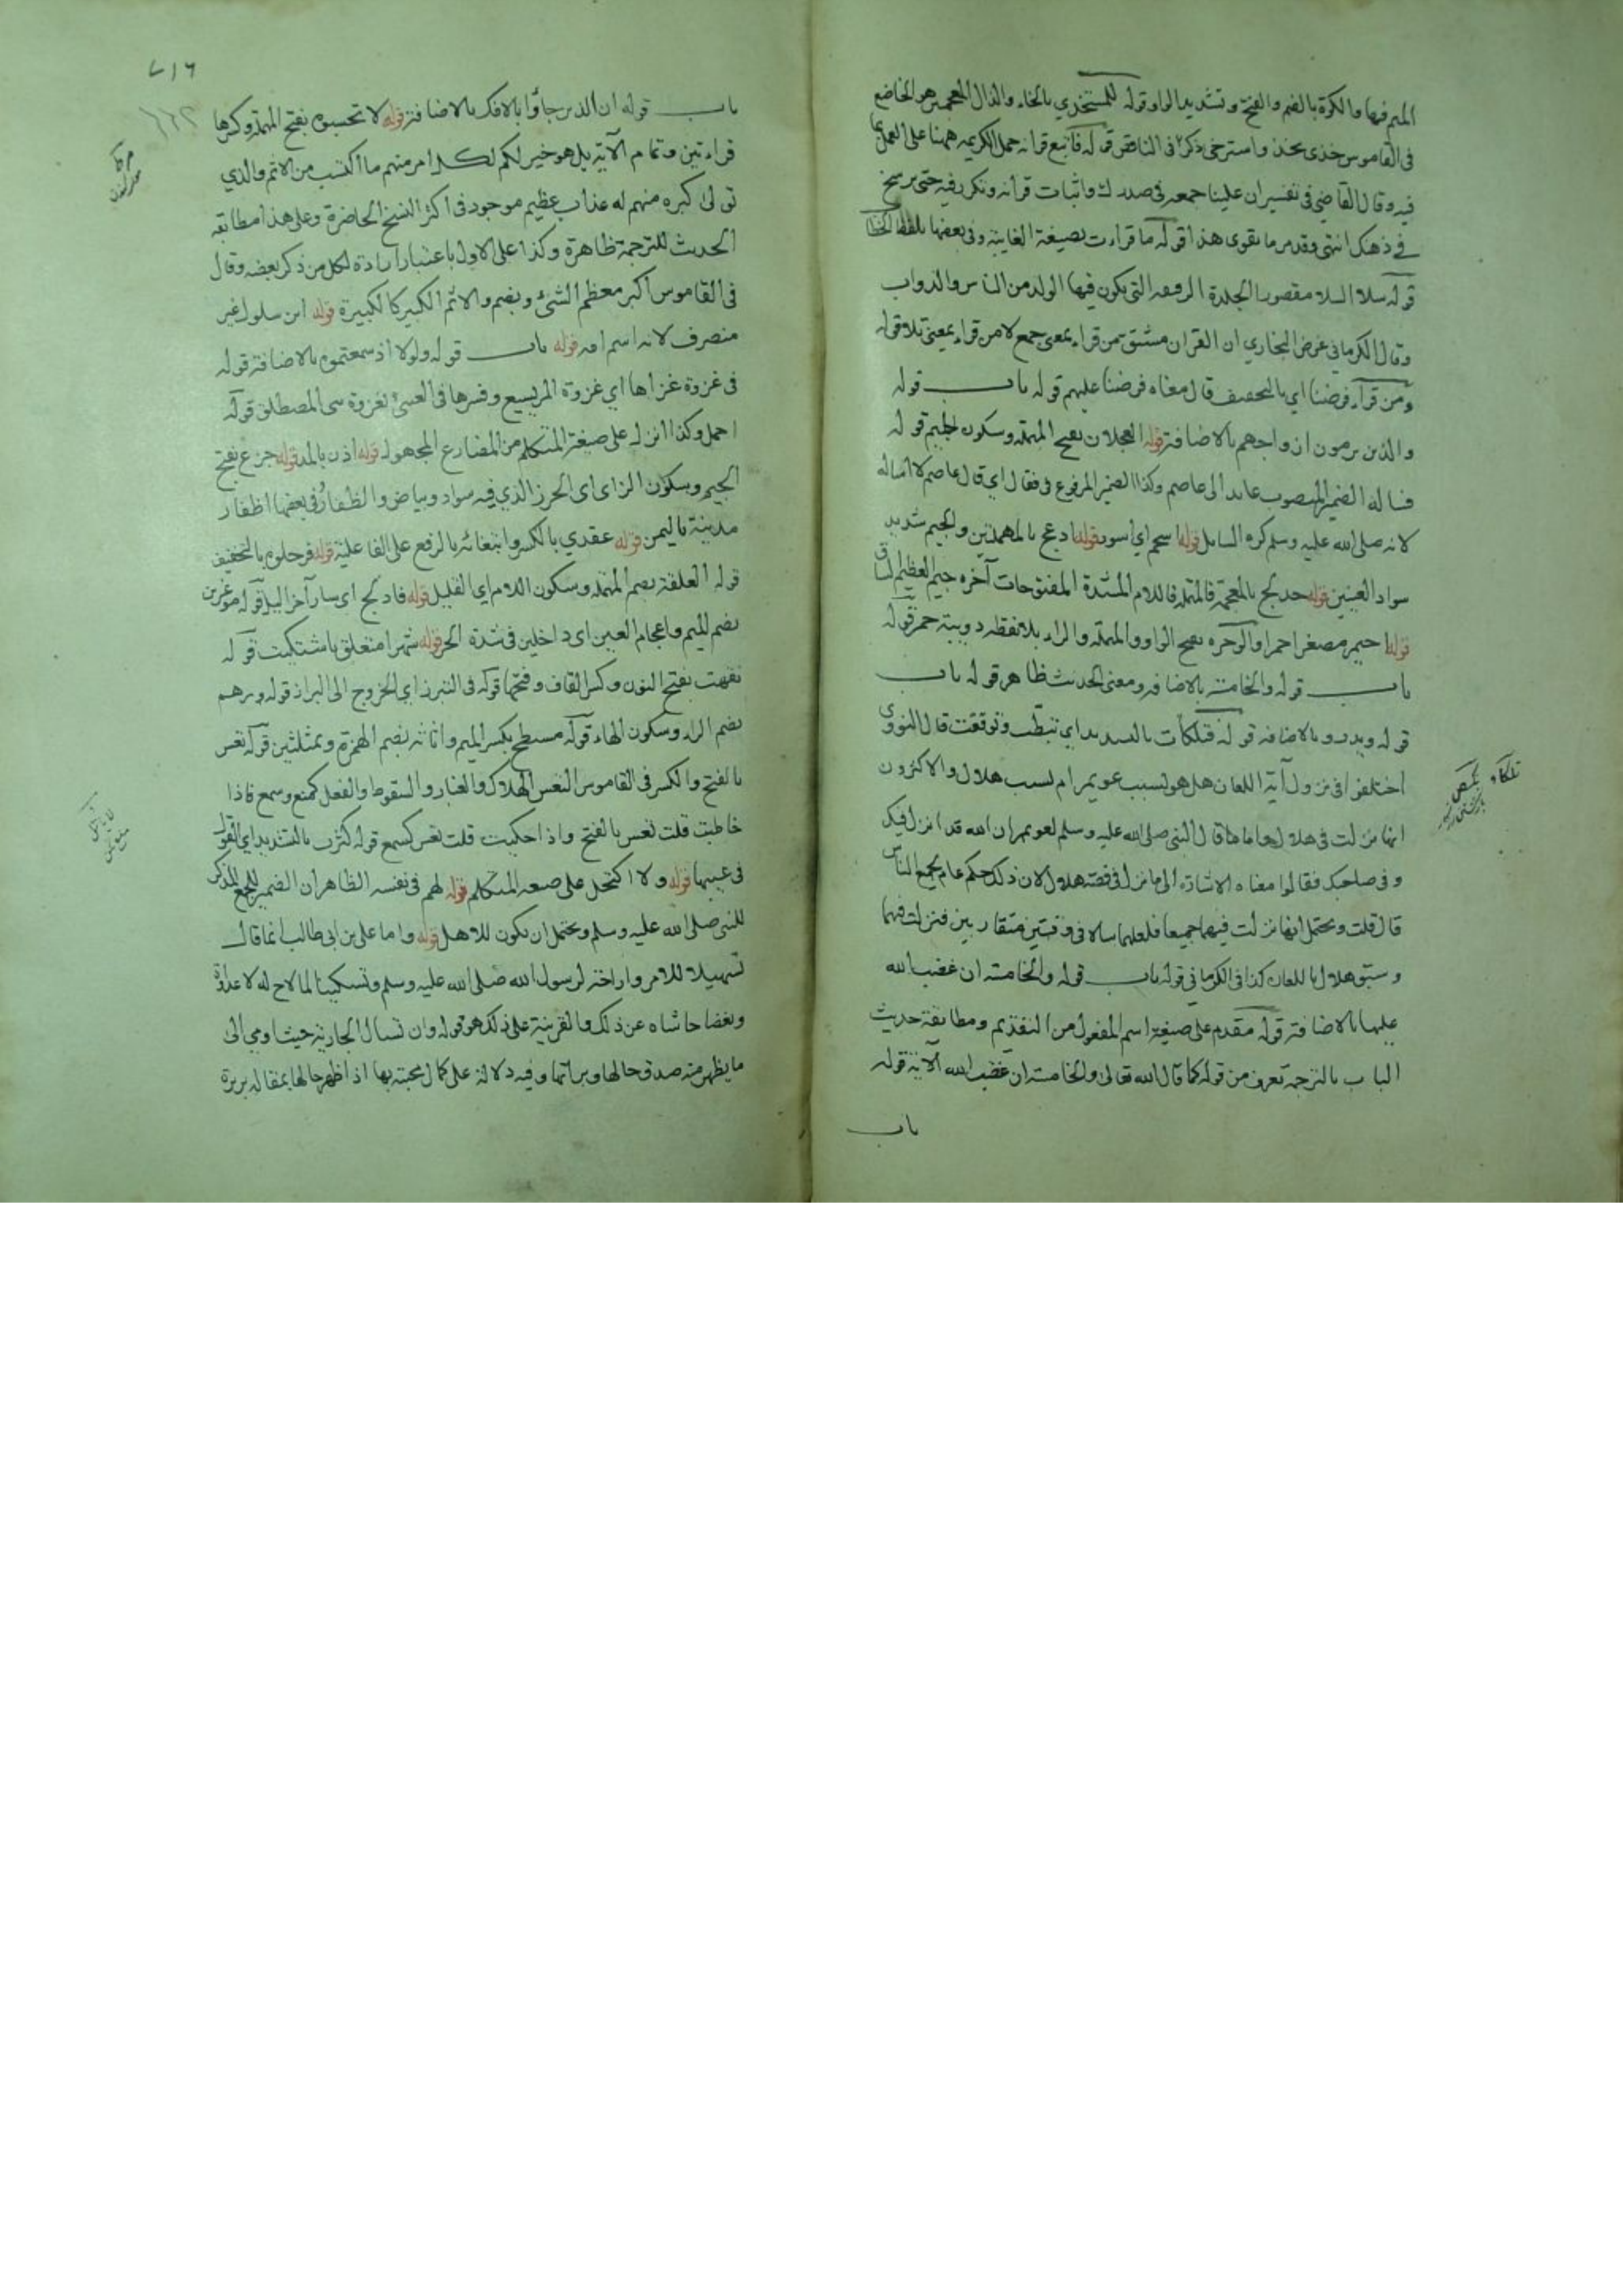 الميم فيها والكوة بالضم والفتح وتشديد الواو قوله للمستخذي بالخاء والذال المعجمين هو الخاضع
في القاموس خذي يخذي واسترخي ذكره في الناقص قوله فاتبع قرانه حمل الكريمه ههنا على العمل
فيه وقال القاضي في تفسير ان علينا جمعه في صدرك واثبات قرانه وتكرر فيه حتى يرسخ
في ذهنك انتهى وقد مر ما يقوي هذا قوله ما قرات بصيغة الغايبة وفي بعضها بلفظ
قوله سلا السلا مقصورا الجلدة الرقيقه التي يكون فيها الولد من الناس والدواب
وقال الكرماني غرض البخاري ان القران مشتق من قراء بمعنى جمع لا من قراء بمعنى تلا قوله
ومن قراء فرضنا اي بالتخفيف قال معناه فرضنا عليهم قوله باب قوله
والذين يرمون ازواجهم بالاضافة قوله العجلان بفتح المهمله وسكون الجيم قوله
فساله الضمير المنصوب عايد الى عاصم وكذا الضمير المرفوع في فقال اي قال عاصم لا اساله
لانه صلى الله عليه وسلم كره السايل قوله اسحم اي اسود قوله ادعج بالمهملتين والجيم شديد
سواد العينين قوله خدلج بالمعجمة فالمهملة فاللام المشددة المفتوحات آخره جيم العظيم الساق
قوله احيمر مصغر احمر والوحره بفتح الواو والمهمله والراء بلا نقطه دويبة حمر قوله
باب قوله والخامسة بالاضافه ومعنى الحديث ظاهر قوله باب
قوله ويدرء بالاضافه قوله فتلكات بالتشديد اي تبطت وتوقفت قال النووي
اختلفوا في نزول آية اللعان هل هو بسبب عويمر ام بسبب هلال والاكثرون
انها نزلت في هلال واما ما قال النبي صلى الله عليه وسلم لعويمر ان الله قد انزل فيك
وفي صاحبك فقالوا معناه الاشارة الى ما نزل في قصة هلال لان ذلك حكم عام لجميع الناس
قال قلت ويحتمل انها نزلت فيهما جميعا فلعلهما سالا في وقتين متقاربين فنزلت فيهما
وسبق هلال باللعان كذا في الكرماني قوله باب قوله والخامسة ان غضب الله
عليها بالاضافة قوله مقدم على صيغة اسم المفعول من التقديم ومطابقة حديث
الباب بالترجمة تعرف من قوله كما قال الله تعالى والخامسة ان غضب الله الآية قوله
باب
باب قوله ان الذين جاؤا بالافك بالاضافة قوله لا تحسبوه بفتح المهملة وكسرها
قراءتين وتمام الآية بل هو خير لكم لكل امر منهم ما اكتسب من الاثم والذي
تولى كبره منهم له عذاب عظيم موجود في اكثر النسخ الحاضرة وعلى هذا مطابقة
الحديث للترجمة ظاهرة وكذا على الاول باعتبار ارادة الكل من ذكر بعضه وقال
في القاموس اكبر معظم الشئ وبضم والاثم الكبير كالكبيرة قوله ابن سلول غير
منصرف لانه اسم امه قوله باب قوله ولولا اذ سمعتموه بالاضافة قوله
في غزوة غزاها اي غزوة المريسيع وفسرها في العيني بغزوة بني المصطلق قوله
احمل وكذا انزل على صيغة المتكلم من المضارع المجهول قوله اذن بالمد قوله جزع بفتح
الجيم وسكون الزاي اي الخرز الذي فيه سواد وبياض والظفار وفي بعضها اظفار
مدينة باليمن قوله عقدي بالكسر وابتغائه بالرفع على الفاعلية قوله فرحلوه بالتخفيف
قوله العلقة بضم المهملة وسكون اللام اي القليل قوله فادلج اي سار آخر الليل قوله موغرين
بضم الميم واعجام الغين اي داخلين في شدة الحر قوله شهرا متعلق باشتكيت قوله
نقهت بفتح النون وكسر القاف وفتحها قوله في التبرز اي الخروج الى البراز قوله ورهم
بضم الراء وسكون الهاء قوله مسطح بكسر الميم واثاثه بضم الهمزة وبمثلثين قوله تعس
بالفتح والكسر في القاموس التعس الهلاك والعثار والسقوط والفعل كمنع وسمع فاذا
خاطبت قلت تعس بالفتح واذا حكيت قلت تعس كسمع قوله كثرن بالتشديد اي القول
في عيبها قوله ولا اكتحل على صيغة المتكلم قوله لهم في نفسه الظاهر ان الضمير للجمع المذكر
للنبي صلى الله عليه وسلم ويحتمل ان يكون للاهل قوله واما علي بن ابي طالب انما قال
تسهيلا للامر واراحة لرسول الله صلى الله عليه وسلم وتسكينا لما لاح له لا عداوة
وبغضا حاشاه عن ذلك والقرينة على ذلك هو قوله وان تسال الجارية حيث اومي الى
ما يظهر منه صدق حالها وبراتها وفيه دلالة على كمال محبته بها اذ اظهر حالها بمقاله بريرة